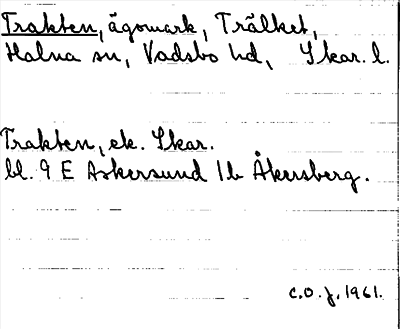 Trakten, ägomark, Trälket,
Halna sn, Vadsbo hd, Skar. l.
Trakten, ek. Skar.
bl. 9 E Askersund 1b Åkersberg.
C.O.J. 1961.